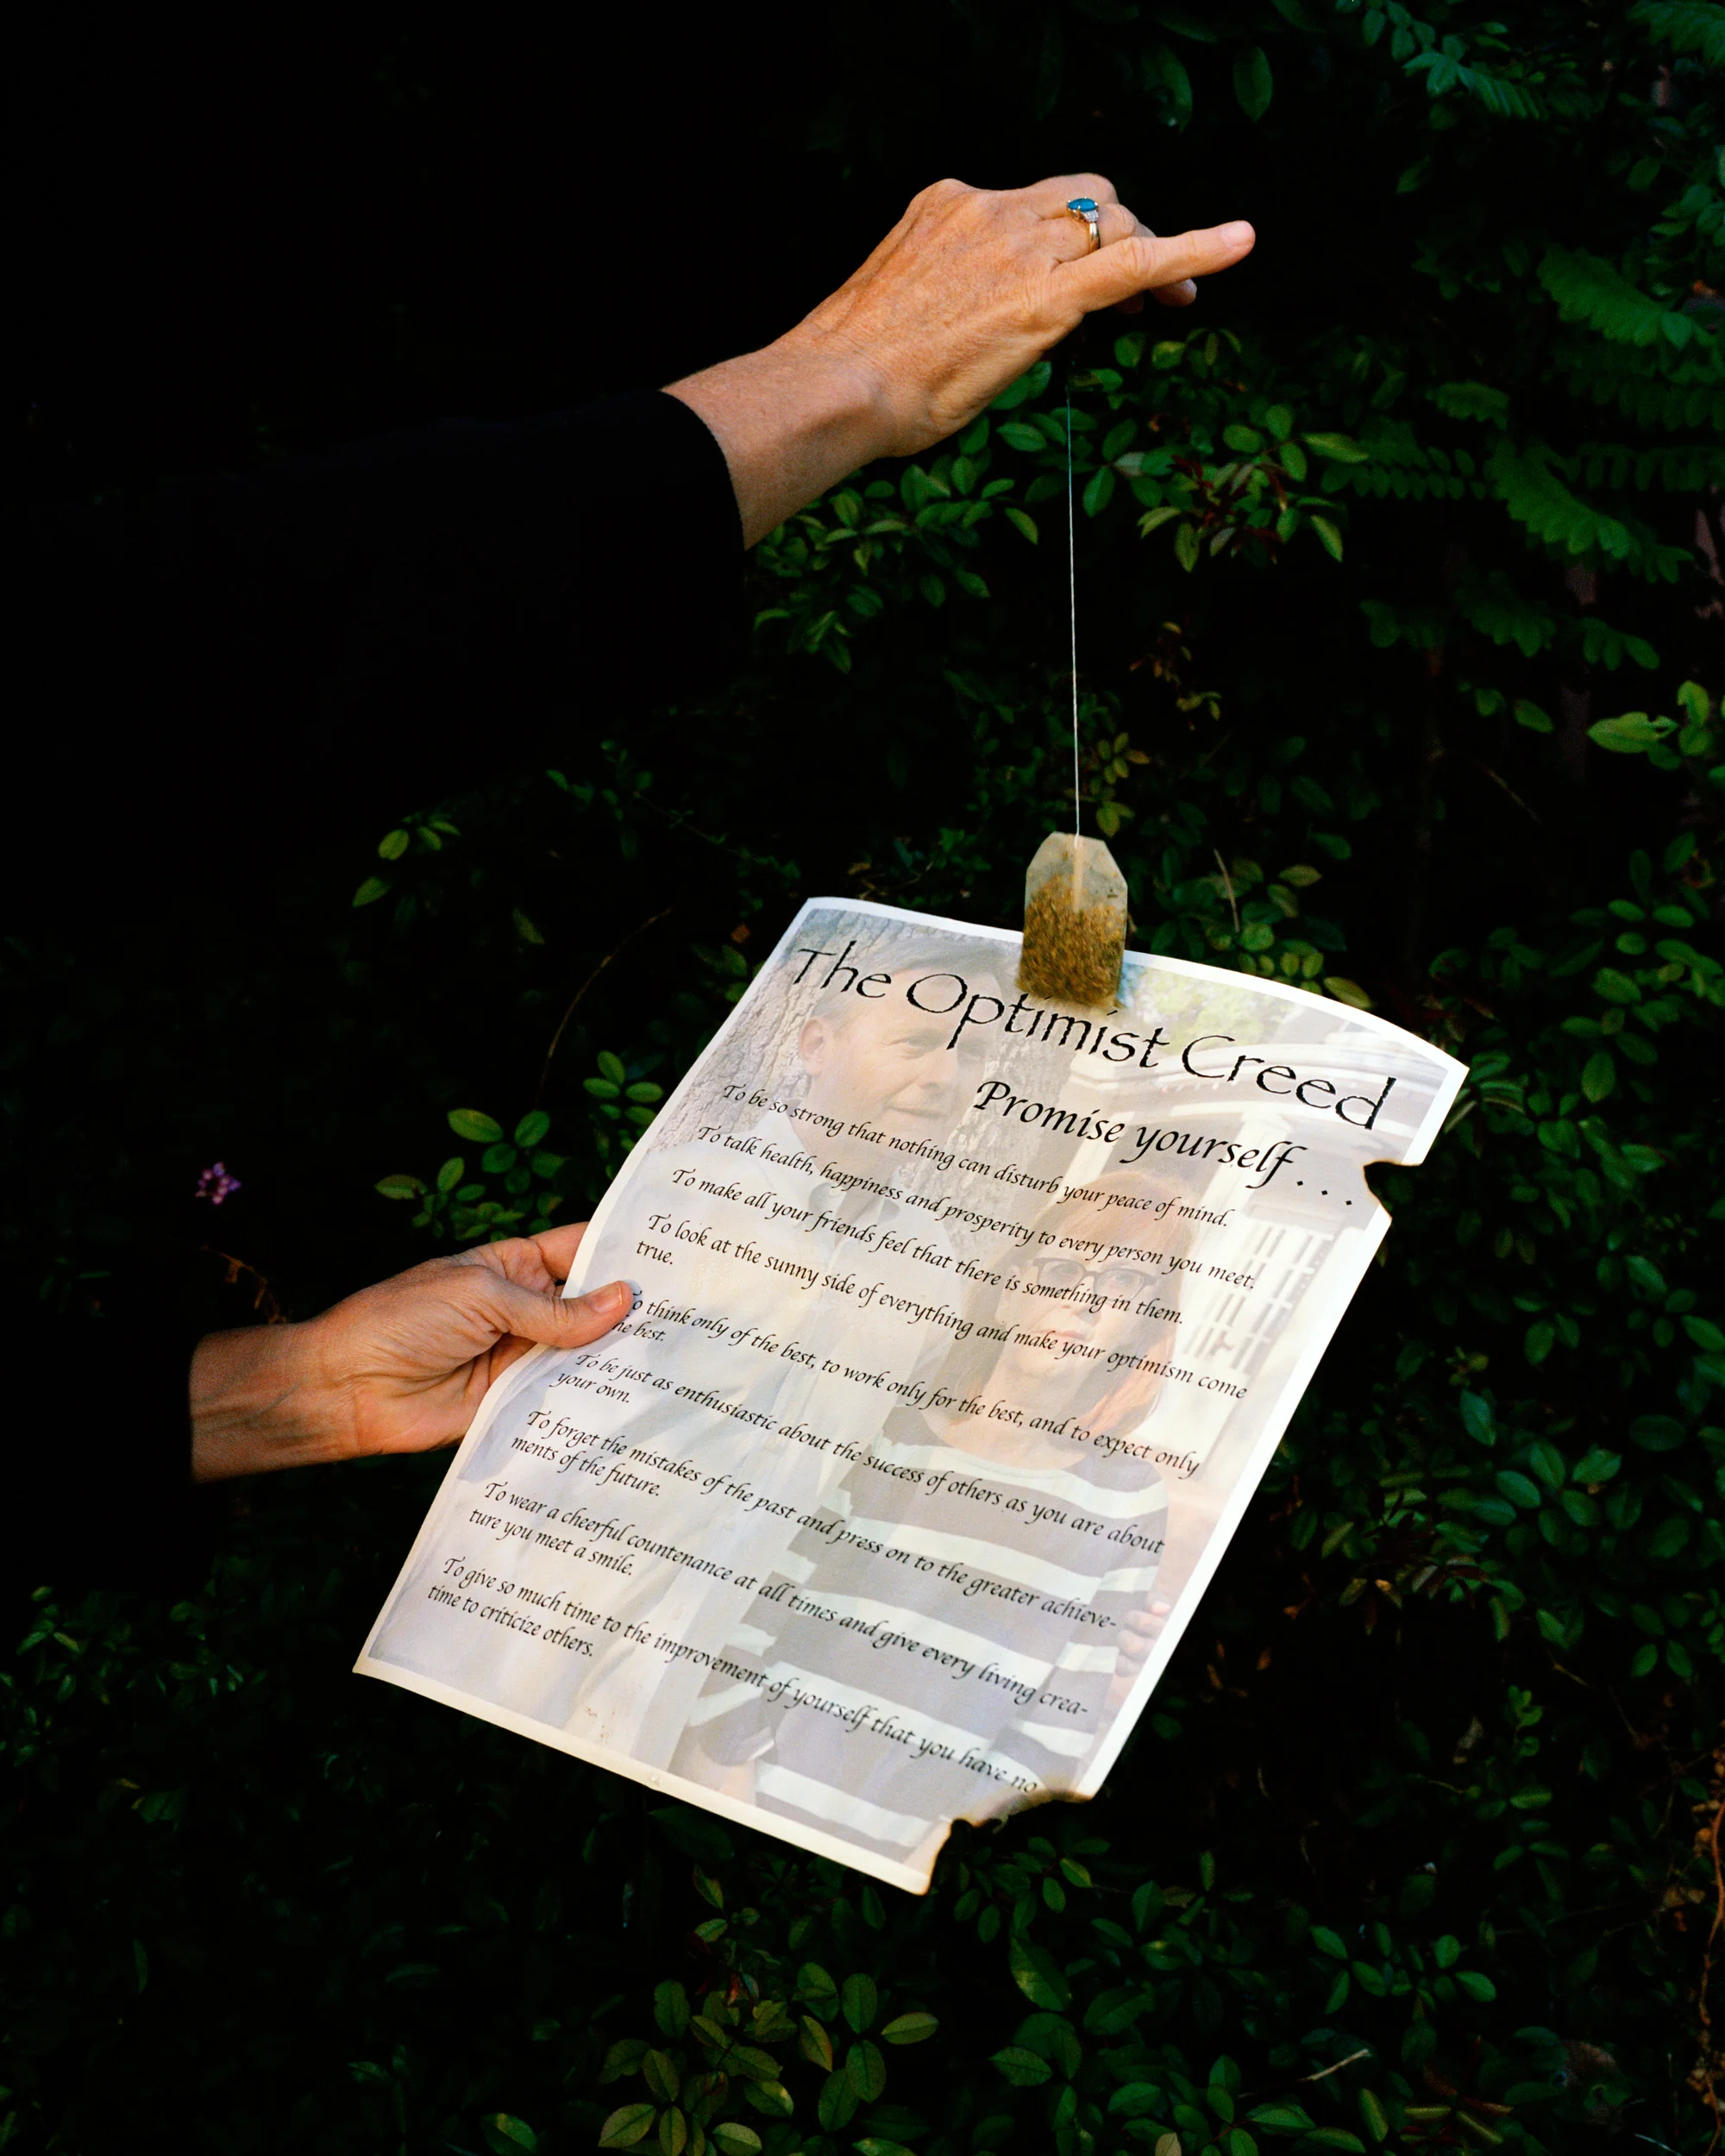 The Optimist Creed
Promise yourself...
To be so strong that nothing can disturb your peace of mind.
To talk health, happiness and prosperity to every person you meet.
To make all your friends feel that there is something in them.
To look at the sunny side of everything and make your optimism come
true.
To think only of the best, to work only for the best, and to expect only
he best.
To be just as enthusiastic about the success of others as you are about
your own.
To forget the mistakes of the past and press on to the greater achieve-
ments of the future.
To wear a cheerful countenance at all times and give every living crea-
ture you meet a smile.
To give so much time to the improvement of yourself that you have no
time to criticize others.